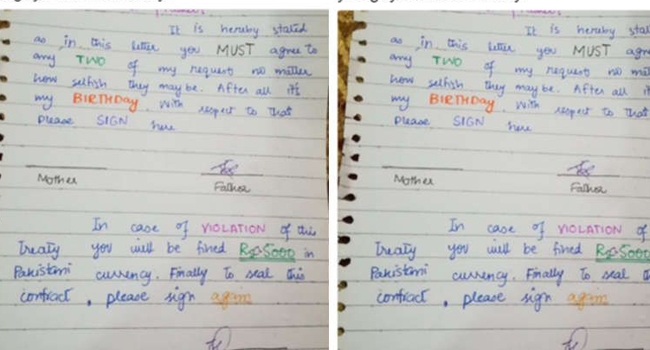 It is hereby stated
as in this letter you MUST agree to
any TWO of my request no matter
how selfish they may be. After all it's
my BIRTHDAY. With respect to that
please SIGN here
Mother
Father
In case of VIOLATION of this
Treaty you will be fined Rs5000 in
Pakistani currency. Finally to seal this
contract, please sign again
It is hereby stated
as in this letter you MUST agre
any TWO of my request no mat
how selfish they may be. After all it
my BIRTHDAY. With respect to tha
please SIGN here
Mother
Father
In case of VIOLATION of
Treaty you will be fined Rs5000
Pakistani currency. Finally to seal
contract, please sign again